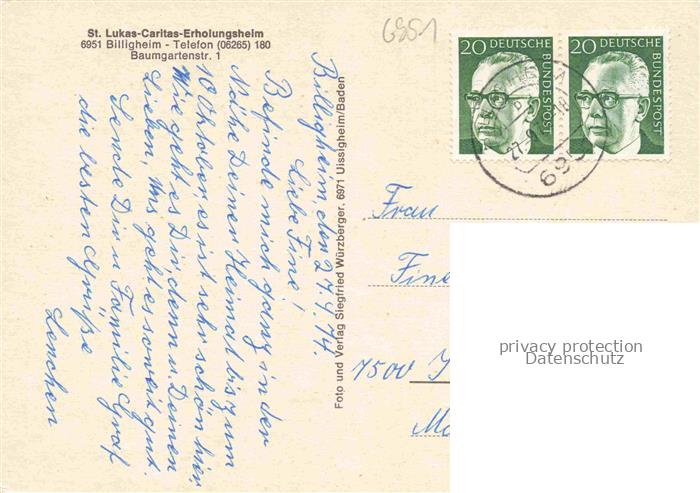 St. Lukas-Caritas-Erholungsheim
6951 Billigheim - Telefon (06265) 180
Baumgartenstr. 1
6951
20 DEUTSCHE BUNDESPOST
20 DEUTSCHE BUNDESPOST
695
Billigheim, den 27.9.74.
Liebe Fine!
Befinde mich ganz in der
Nähe Deiner Heimat bis zum
10 Oktober es ist sehr schön hier,
Wie geht es Dir, denn u. Deinen
Lieben, Uns geht es soweit gut.
Sende Dir u Familie Graf
die besten Grüße
Lenchen
Foto und Verlag Siegfried Würzberger, 6971 Uissigheim/Baden
Frau
Fine
7500
privacy protection
Datenschutz